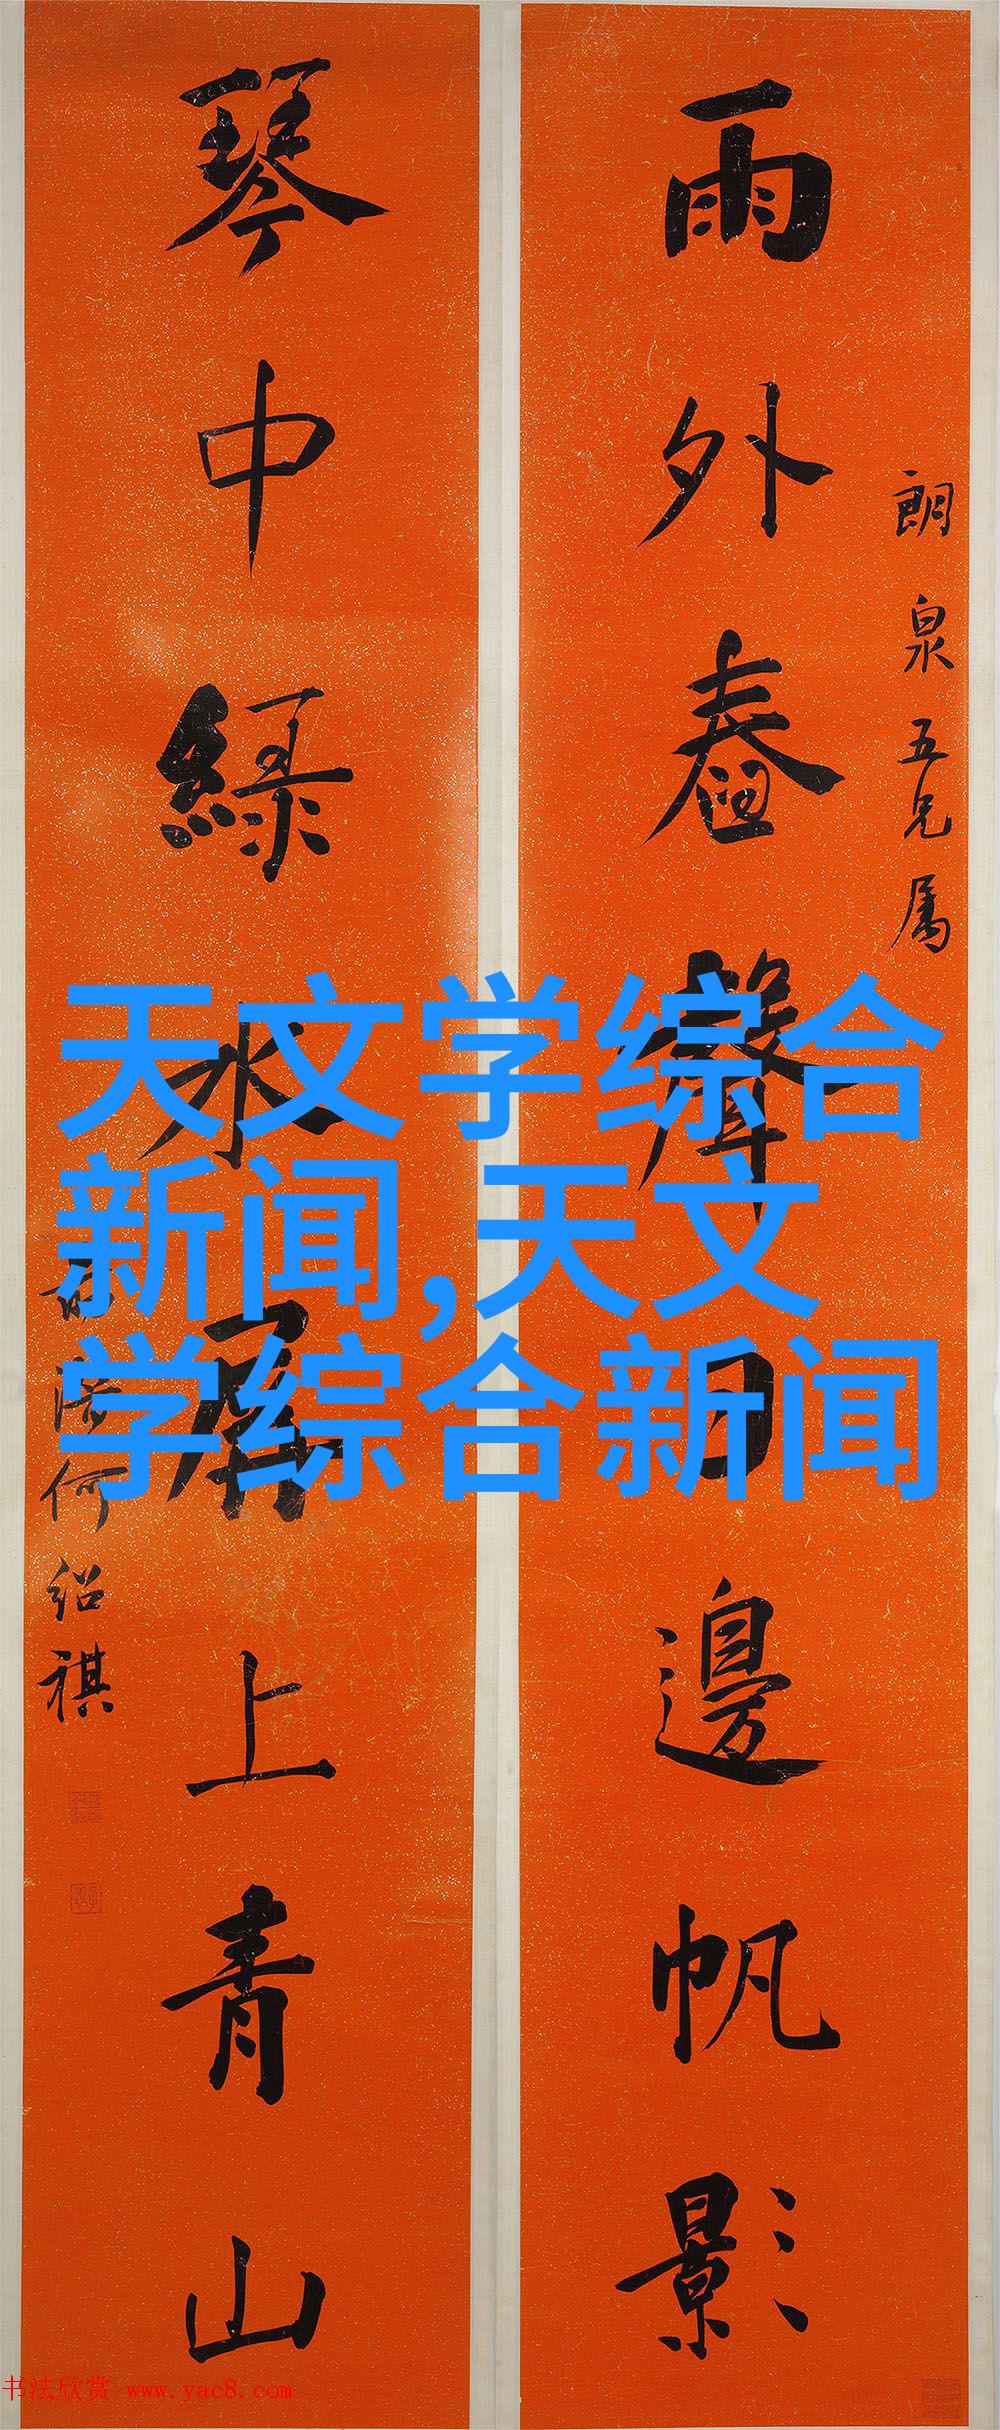 朗泉五兄属
雨外舂聲日邊帆影
琴中綠水屏上青山
何绍祺
天文学综合
新闻,天文
学综合新闻
书法欣赏 www.yac8.com